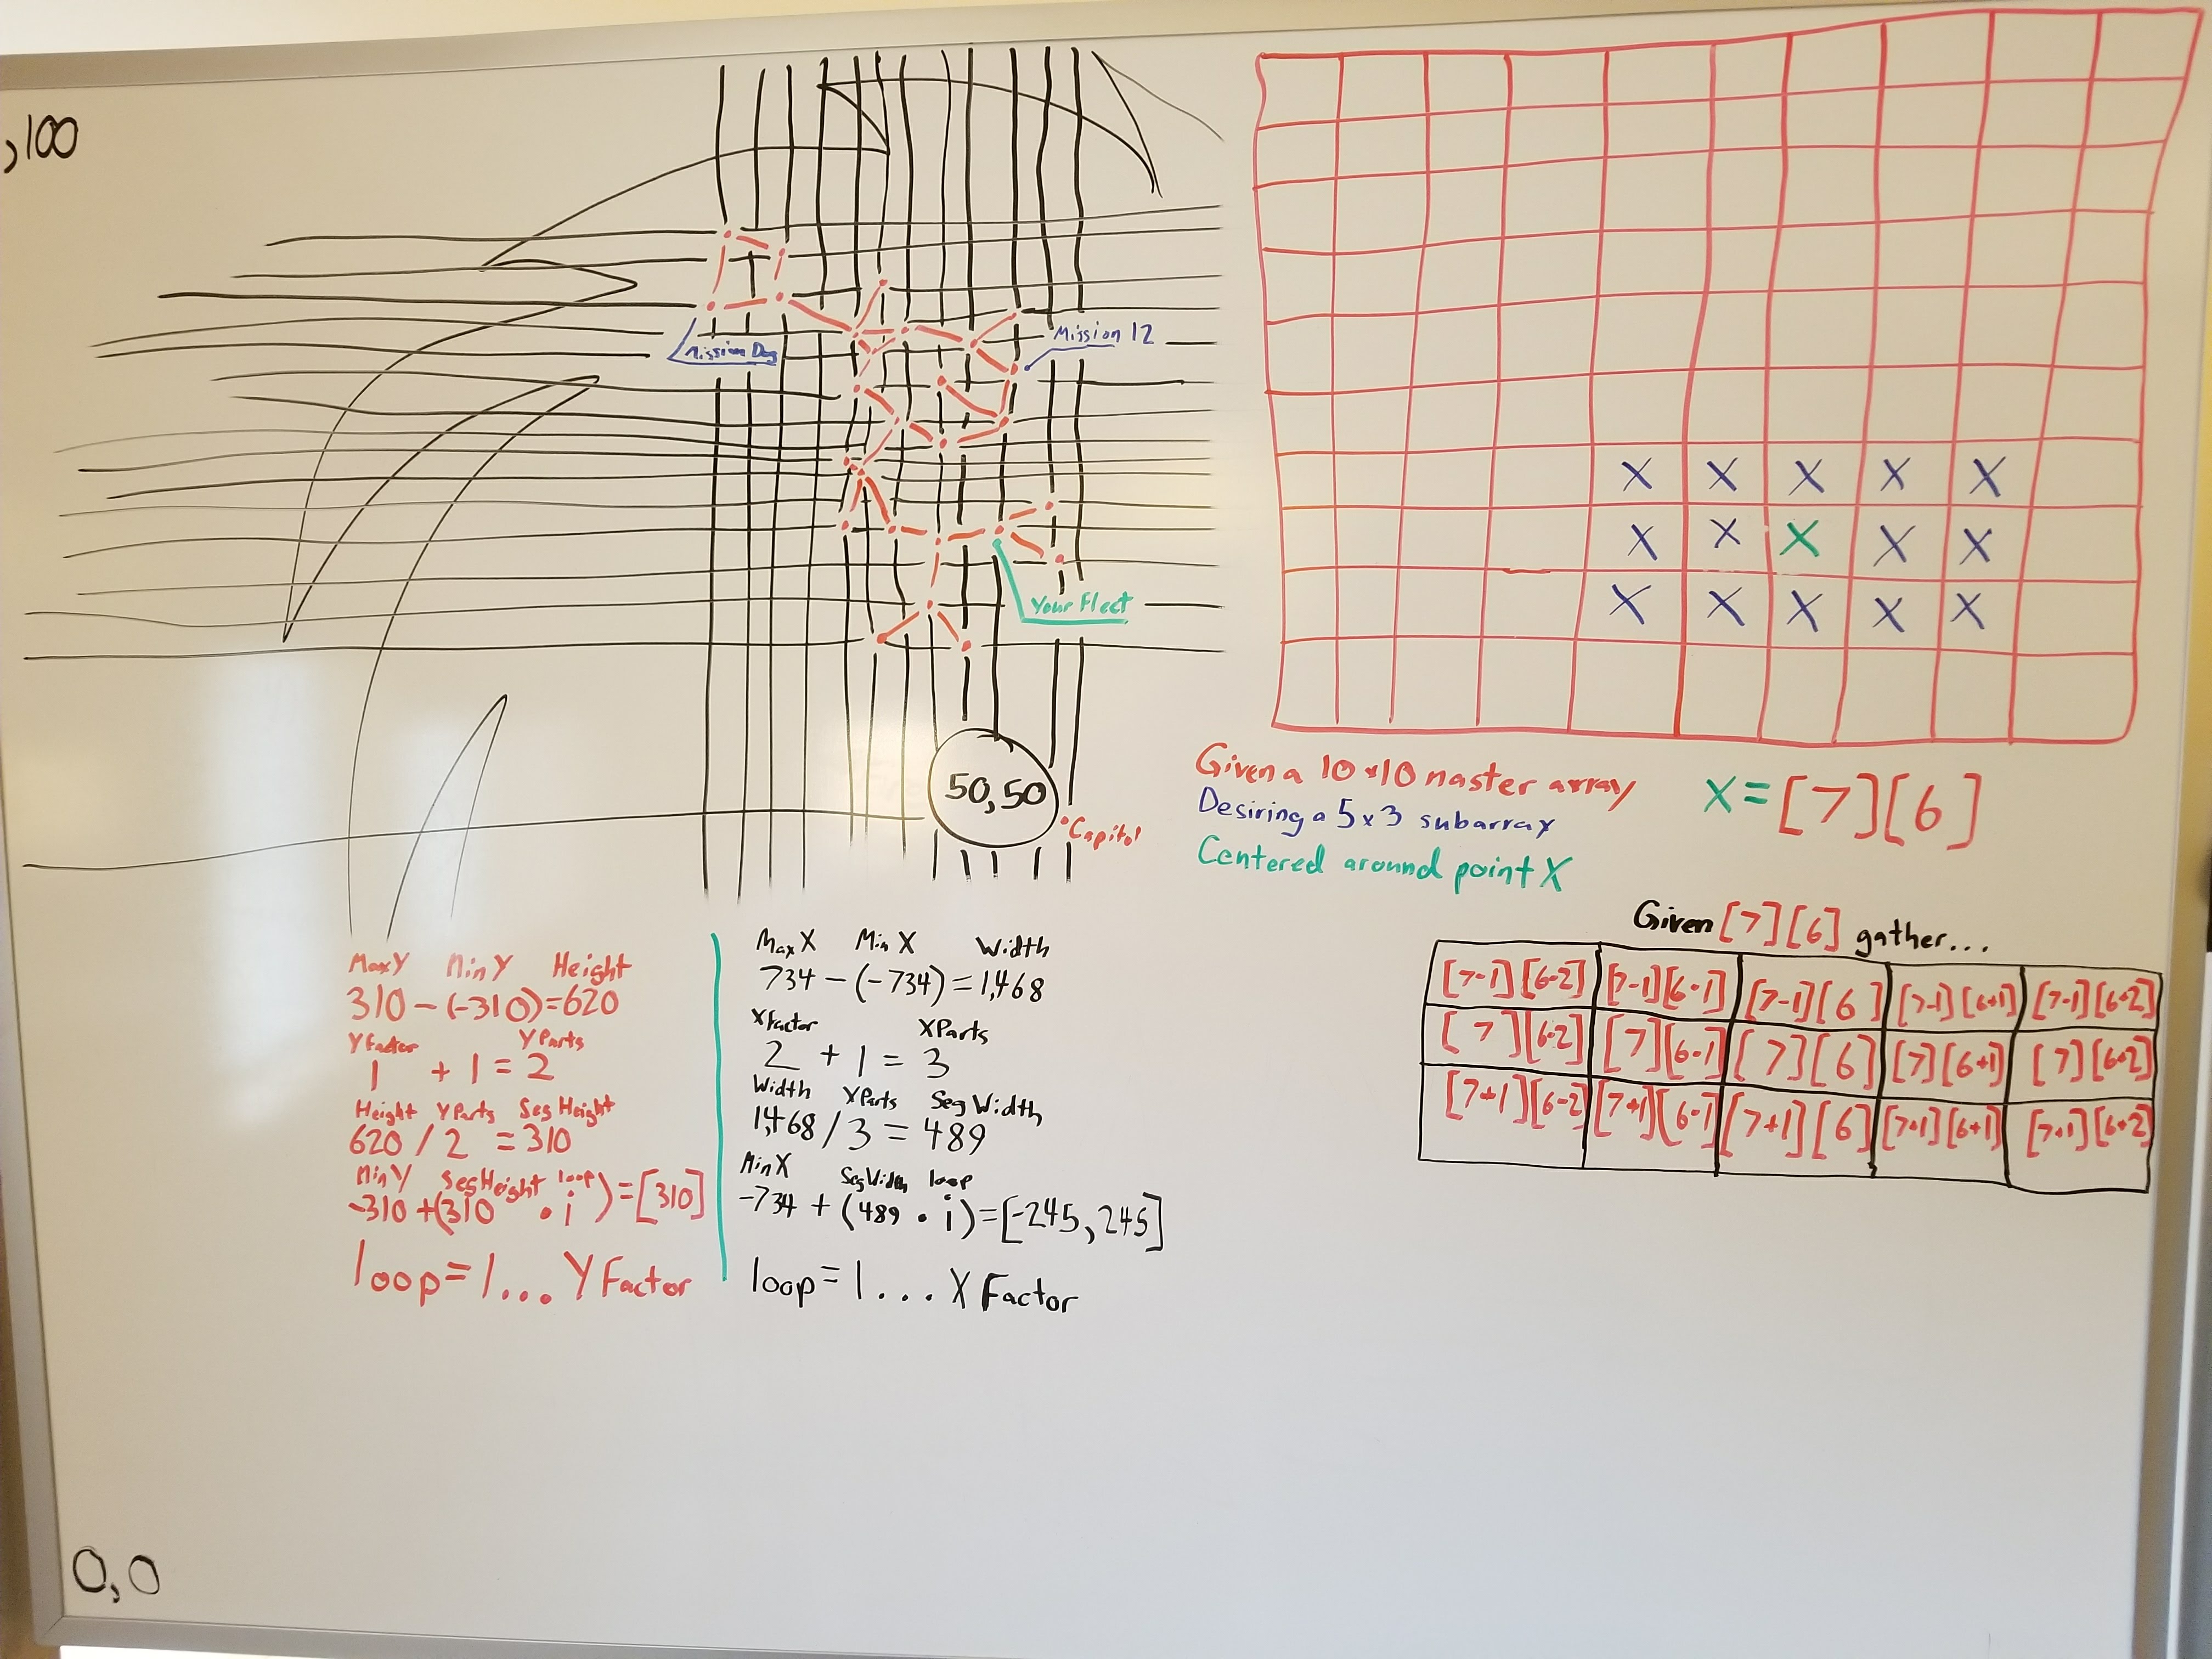 ,100
Mission Dog
Mission 12
Your Fleet
50,50
Capitol
0,0
MaxY MinY Height
310 - (-310) = 620
YFactor YParts
1 + 1 = 2
Height YParts Seg Height
620 / 2 = 310
MinY SegHeight loop
-310 + (310 • i) = [310]
loop = 1... YFactor
Max X Min X Width
734 - (-734) = 1,468
XFactor XParts
2 + 1 = 3
Width XParts Seg Width
1,468 / 3 = 489
Min X SegWidth loop
-734 + (489 • i) = [-245, 245]
loop = 1... X Factor
X X X X X
X X X X X
X X X X X
Given a 10x10 naster array
Desiring a 5x3 subarray
Centered around point X
X = [7][6]
Given [7][6] gather...
[7-1][6-2] [7-1][6-1] [7-1][6] [7-1][6+1] [7-1][6+2]
[7][6-2] [7][6-1] [7][6] [7][6+1] [7][6+2]
[7+1][6-2] [7+1][6-1] [7+1][6] [7+1][6+1] [7+1][6+2]